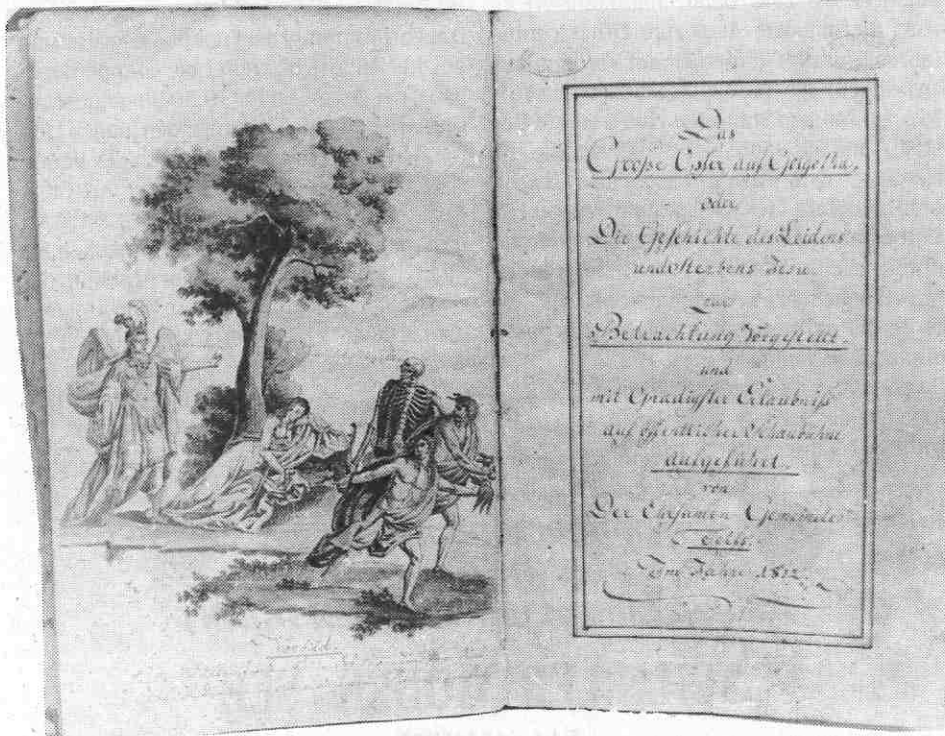 Vorbild.
Das
Große Opfer auf Golgotha,
oder
Die Geschichte des Leidens
und Sterbens Jesu
zur
Betrachtung Vorgestellt.
und
mit Gnädigster Erlaubniß
auf öffentlicher Schaubühne
aufgeführt.
von
Der Ehrsamen Gemeinde
Im Jahre 1812